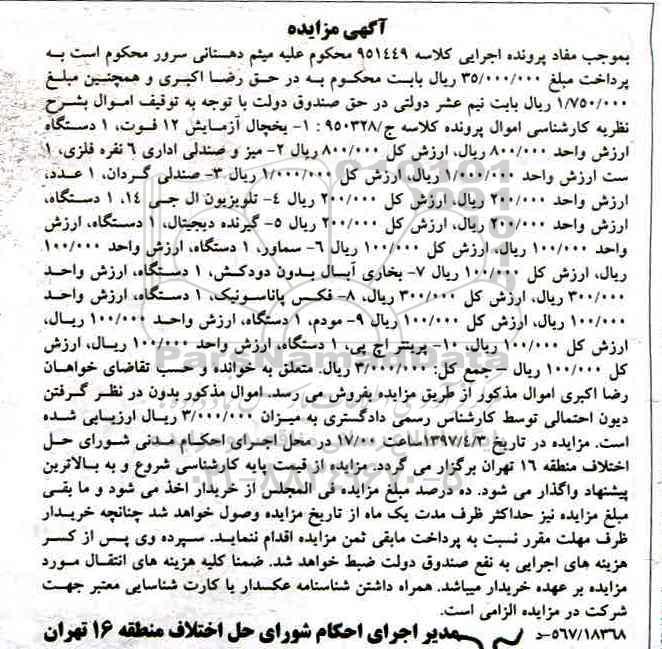 آگهی مزایده
بموجب مفاد پرونده اجرایی کلاسه ۹۵۱۴۴۹ محکوم علیه میثم دهستانی سرور محکوم است به
پرداخت مبلغ ۳۵/۰۰۰/۰۰۰ ریال بابت محکوم به در حق رضا اکبری و همچنین مبلغ
۱/۷۵۰/۰۰۰ ریال بابت نیم عشر دولتی در حق صندوق دولت با توجه به توقیف اموال بشرح
نظریه کارشناسی اموال پرونده کلاسه ج/۹۵۰۳۲۸ : ۱- یخچال آزمایش ۱۲ فوت، ۱ دستگاه
ارزش واحد ۸۰۰/۰۰۰ ریال، ارزش کل ۸۰۰/۰۰۰ ریال ۲- میز و صندلی اداری ۶ نفره فلزی، ۱
ست ارزش واحد ۱/۰۰۰/۰۰۰ ریال، ارزش کل ۱/۰۰۰/۰۰۰ ریال ۳- صندلی گردان، ۱ عدد،
ارزش واحد ۲۰۰/۰۰۰ ریال، ارزش کل ۲۰۰/۰۰۰ ریال ۴- تلویزیون ال جی ۱۴، ۱ دستگاه،
ارزش واحد ۲۰۰/۰۰۰ ریال، ارزش کل ۲۰۰/۰۰۰ ریال ۵- گیرنده دیجیتال، ۱ دستگاه، ارزش
واحد ۱۰۰/۰۰۰ ریال، ارزش کل ۱۰۰/۰۰۰ ریال ۶- سماور، ۱ دستگاه، ارزش واحد ۱۰۰/۰۰۰
ریال، ارزش کل ۱۰۰/۰۰۰ ریال ۷- بخاری آبسال بدون دودکش، ۱ دستگاه، ارزش واحد
۳۰۰/۰۰۰ ریال، ارزش کل ۳۰۰/۰۰۰ ریال، ۸- فکس پاناسونیک، ۱ دستگاه، ارزش واحد
۱۰۰/۰۰۰ ریال، ارزش کل ۱۰۰/۰۰۰ ریال ۹- مودم، ۱ دستگاه، ارزش واحد ۱۰۰/۰۰۰ ریال،
ارزش کل ۱۰۰/۰۰۰ ریال، ۱۰- پرینتر اچ پی، ۱ دستگاه، ارزش واحد ۱۰۰/۰۰۰ ریال، ارزش
کل ۱۰۰/۰۰۰ ریال – جمع کل: ۳/۰۰۰/۰۰۰ ریال. متعلق به خوانده و حسب تقاضای خواهان
رضا اکبری اموال مذکور از طریق مزایده بفروش می رسد. اموال مذکور بدون در نظر گرفتن
دیون احتمالی توسط کارشناس رسمی دادگستری به میزان ۳/۰۰۰/۰۰۰ ریال ارزیابی شده
است. مزایده در تاریخ ۱۳۹۷/۴/۳ساعت ۱۷/۰۰ در محل اجرای احکام مدنی شورای حل
اختلاف منطقه ۱۶ تهران برگزار می گردد. مزایده از قیمت پایه کارشناسی شروع و به بالاترین
پیشنهاد واگذار می شود. ده درصد مبلغ مزایده فی المجلس از خریدار اخذ می شود و ما بقی
مبلغ مزایده نیز حداکثر ظرف مدت یک ماه از تاریخ مزایده وصول خواهد شد چنانچه خریدار
ظرف مهلت مقرر نسبت به پرداخت مابقی ثمن مزایده اقدام ننماید. سپرده وی پس از کسر
هزینه های اجرایی به نفع صندوق دولت ضبط خواهد شد. ضمنا کلیه هزینه های انتقال مورد
مزایده بر عهده خریدار میباشد. همراه داشتن شناسنامه عکدار یا کارت شناسایی معتبر جهت
شرکت در مزایده الزامی است.
۵۶۷/۱۸۳۶۸-د مدیر اجرای احکام شورای حل اختلاف منطقه ۱۶ تهران
ParsNamadData
۰۲۱-۸۸۳۴۹۶۷۰-۵